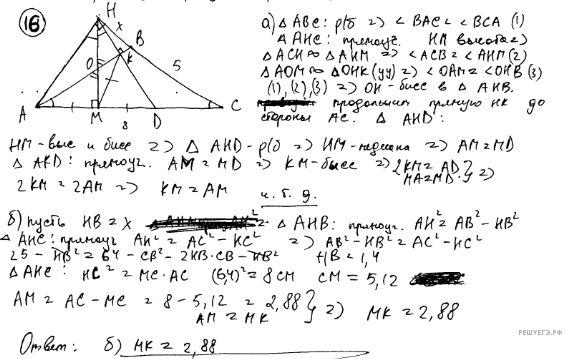 16
а) △ ABC: р/б => < BAC = < BCA (1)
△ AHC: прямоуг. HM высота =>
△ ACH ∾ △ AHM => < ACB = < AHM (2)
△ AOM ∾ △ OHK (уу) => < OAM = < OHB (3)
(1), (2), (3) => OH - бисс в △ AHB.
продолжим прямую HK до
стороны AC. △ AHD:
H
x
B
K
5
O
A
M
D
C
8
HM - выс и бисс => △ AHD - р/б => HM - медиана => AM = MD
△ AKD: прямоуг. AM = MD => KM - бисс => 2KM = AD } =>
MA = MD
2KM = 2AM => KM = AM
ч.т.д.
б) пусть HB = x △ AHB: прямоуг. AH² = AB² - HB²
△ AHC: прямоуг AH² = AC² - HC² => AB² - HB² = AC² - HC²
25 - HB² = 64 - CB² - 2HB·CB - HB² HB = 1,4
△ AHC: HC² = MC·AC (6,4)² = 8CM CM = 5,12
AM = AC - MC = 8 - 5,12 = 2,88 } => MK = 2,88
AM = MK
Ответ: б) MK = 2,88
РЕШУЕГЭ.РФ